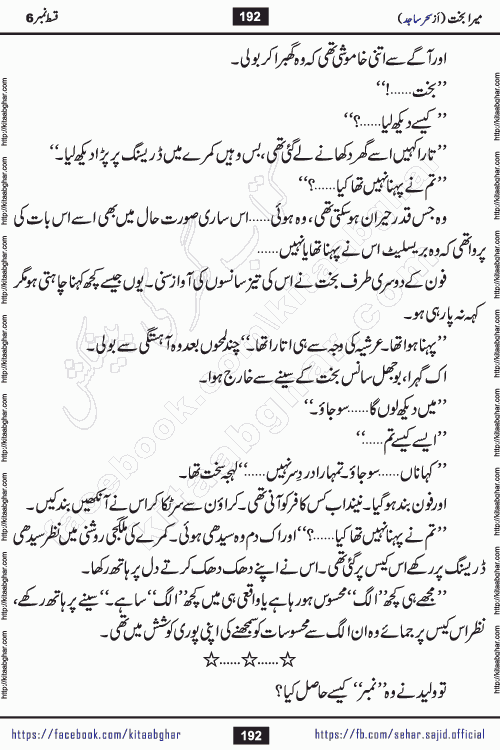 میرا بخت (از سحر ساجد)
192
قسط نمبر 6
اور آگے سے اتنی خاموشی تھی کہ وہ گھبرا کر بولی۔
’’بخت......!‘‘
’’کیسے دیکھ لیا......؟‘‘
’’تارا کہیں اسے گھر دکھانے لے گئی تھی، بس وہیں کمرے میں ڈریسنگ پر پڑا دیکھ لیا۔‘‘
’’تم نے پہنا نہیں تھا کیا......؟‘‘
وہ جس قدر حیران ہوسکتی تھی، وہ ہوئی......اس ساری صورت حال میں بھی اسے اس بات کی
پروا تھی کہ وہ بریسلیٹ اس نے پہنا تھا یا نہیں......
فون کے دوسری طرف بخت نے اس کی تیز سانسوں کی آواز سنی۔ یوں جیسے کچھ کہنا چاہتی ہو مگر
کہہ نہ پا رہی ہو۔
’’پہنا ہوا تھا۔ عرشیہ کی وجہ سے ہی اتارا تھا۔‘‘ چند لمحوں بعد وہ آہستگی سے بولی۔
اک گہرا، بوجھل سانس بخت کے سینے سے خارج ہوا۔
’’میں دیکھ لوں گا......سو جاؤ۔‘‘
’’ایسے کیسے تم......‘‘
’’کہا ناں......سو جاؤ۔ تمہارا درد سر نہیں......‘‘ لہجہ سخت تھا۔
اور فون بند ہو گیا۔ نیند اب کس کافر کو آنی تھی۔ کراؤن سے سر ٹکا کر اس نے آنکھیں بند کیں۔
’’تم نے پہنا نہیں تھا کیا......؟‘‘ اور اک دم وہ سیدھی ہوئی۔ کمرے کی ملگجی روشنی میں نظر سیدھی
ڈریسنگ پر رکھے اس کیس پر گئی تھی۔ اس نے اپنے دھک دھک کرتے دل پر ہاتھ رکھا۔
’’مجھے ہی کچھ ’’الگ‘‘ محسوس ہو رہا ہے یا واقعی ہی میں کچھ ’’الگ‘‘ سا ہے۔‘‘ سینے پر ہاتھ رکھے،
نظر اس کیس پر جمائے وہ ان الگ سے محسوسات کو سمجھنے کی اپنی پوری کوشش میں تھی۔
☆......☆......☆
تو ولید نے وہ ’’نمبر‘‘ کیسے حاصل کیا؟
https://facebook.com/kitaabghar
192
https://fb.com/sehar.sajid.official
http://kitaabghar.com